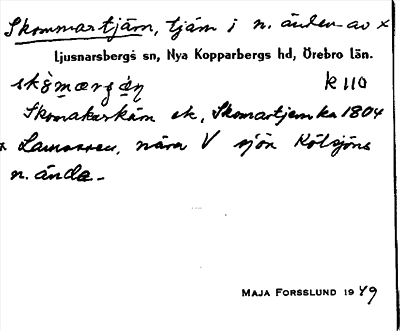 Skommartjärn, tjärn i n. änden av x
Ljusnarsbergs sn, Nya Kopparbergs hd, Örebro län.
k 110
Skomakarkärn ek, Skomartjern ka 1804
x nära V sjön Kölsjöns
n. ända.
MAJA FORSSLUND 1949